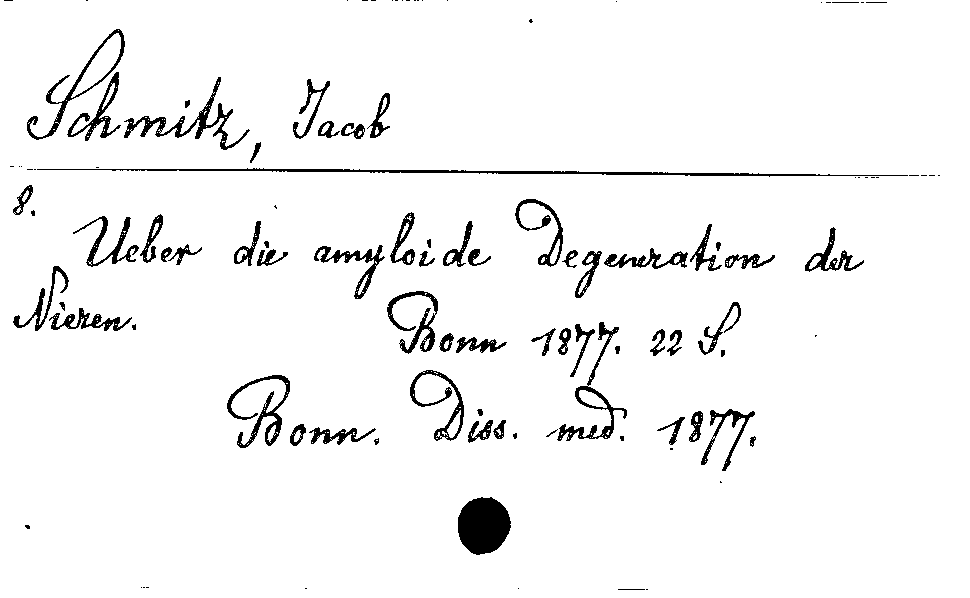 Schmitz, Jacob
8.
Ueber die amyloide Degeneration der
Nieren.
Bonn 1877. 22 S.
Bonn. Diss. med. 1877.